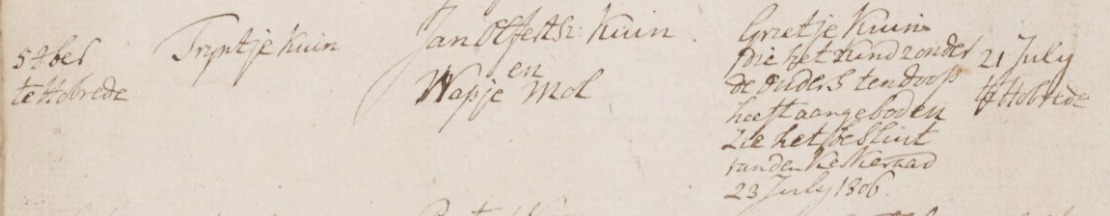 5 7ber
te Hobrede
Tryntje Kuin
Jan Olfertsz: Kuin.
en
Wapje Mol
Grietje Kuin
die het kind zonder
de ouders ten doop
heeft aangeboden
zie het besluit
van den Kerkeraad
23 July 1806.
21 July
te Hobrede